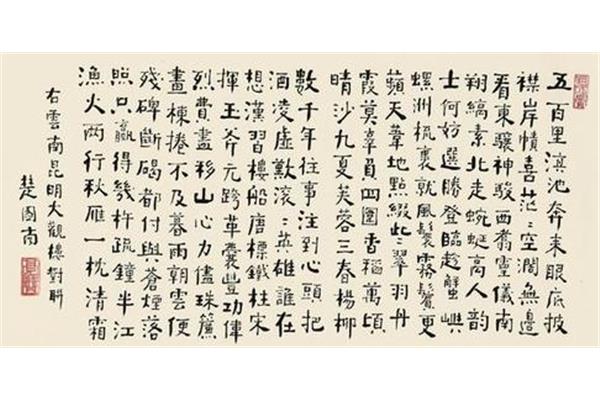 五百里滇池奔来眼底披
襟岸幘喜茫〻空闊無邊
看東驤神駿西翥靈儀南
翔縞素北走蜿蜒高人韵
士何妨選勝登臨趁蟹嶼
螺洲梳裹就風鬟霧鬢更
蘋天葦地點綴些〻翠羽丹
霞莫辜負四圍香稻萬頃
晴沙九夏芙蓉三春楊柳
數千年往事注到心頭把
酒凌虛歎滾〻英雄誰在
想漢習樓船唐標鐵柱宋
揮玉斧元跨革囊豐功偉
烈費盡移山心力儘珠簾
畫棟捲不及暮雨朝雲便
殘碑斷碣都付與蒼煙落
照只贏得幾杵疏鐘半江
漁火兩行秋雁一枕清霜
右雲南昆明大觀樓對聯
楚圖南